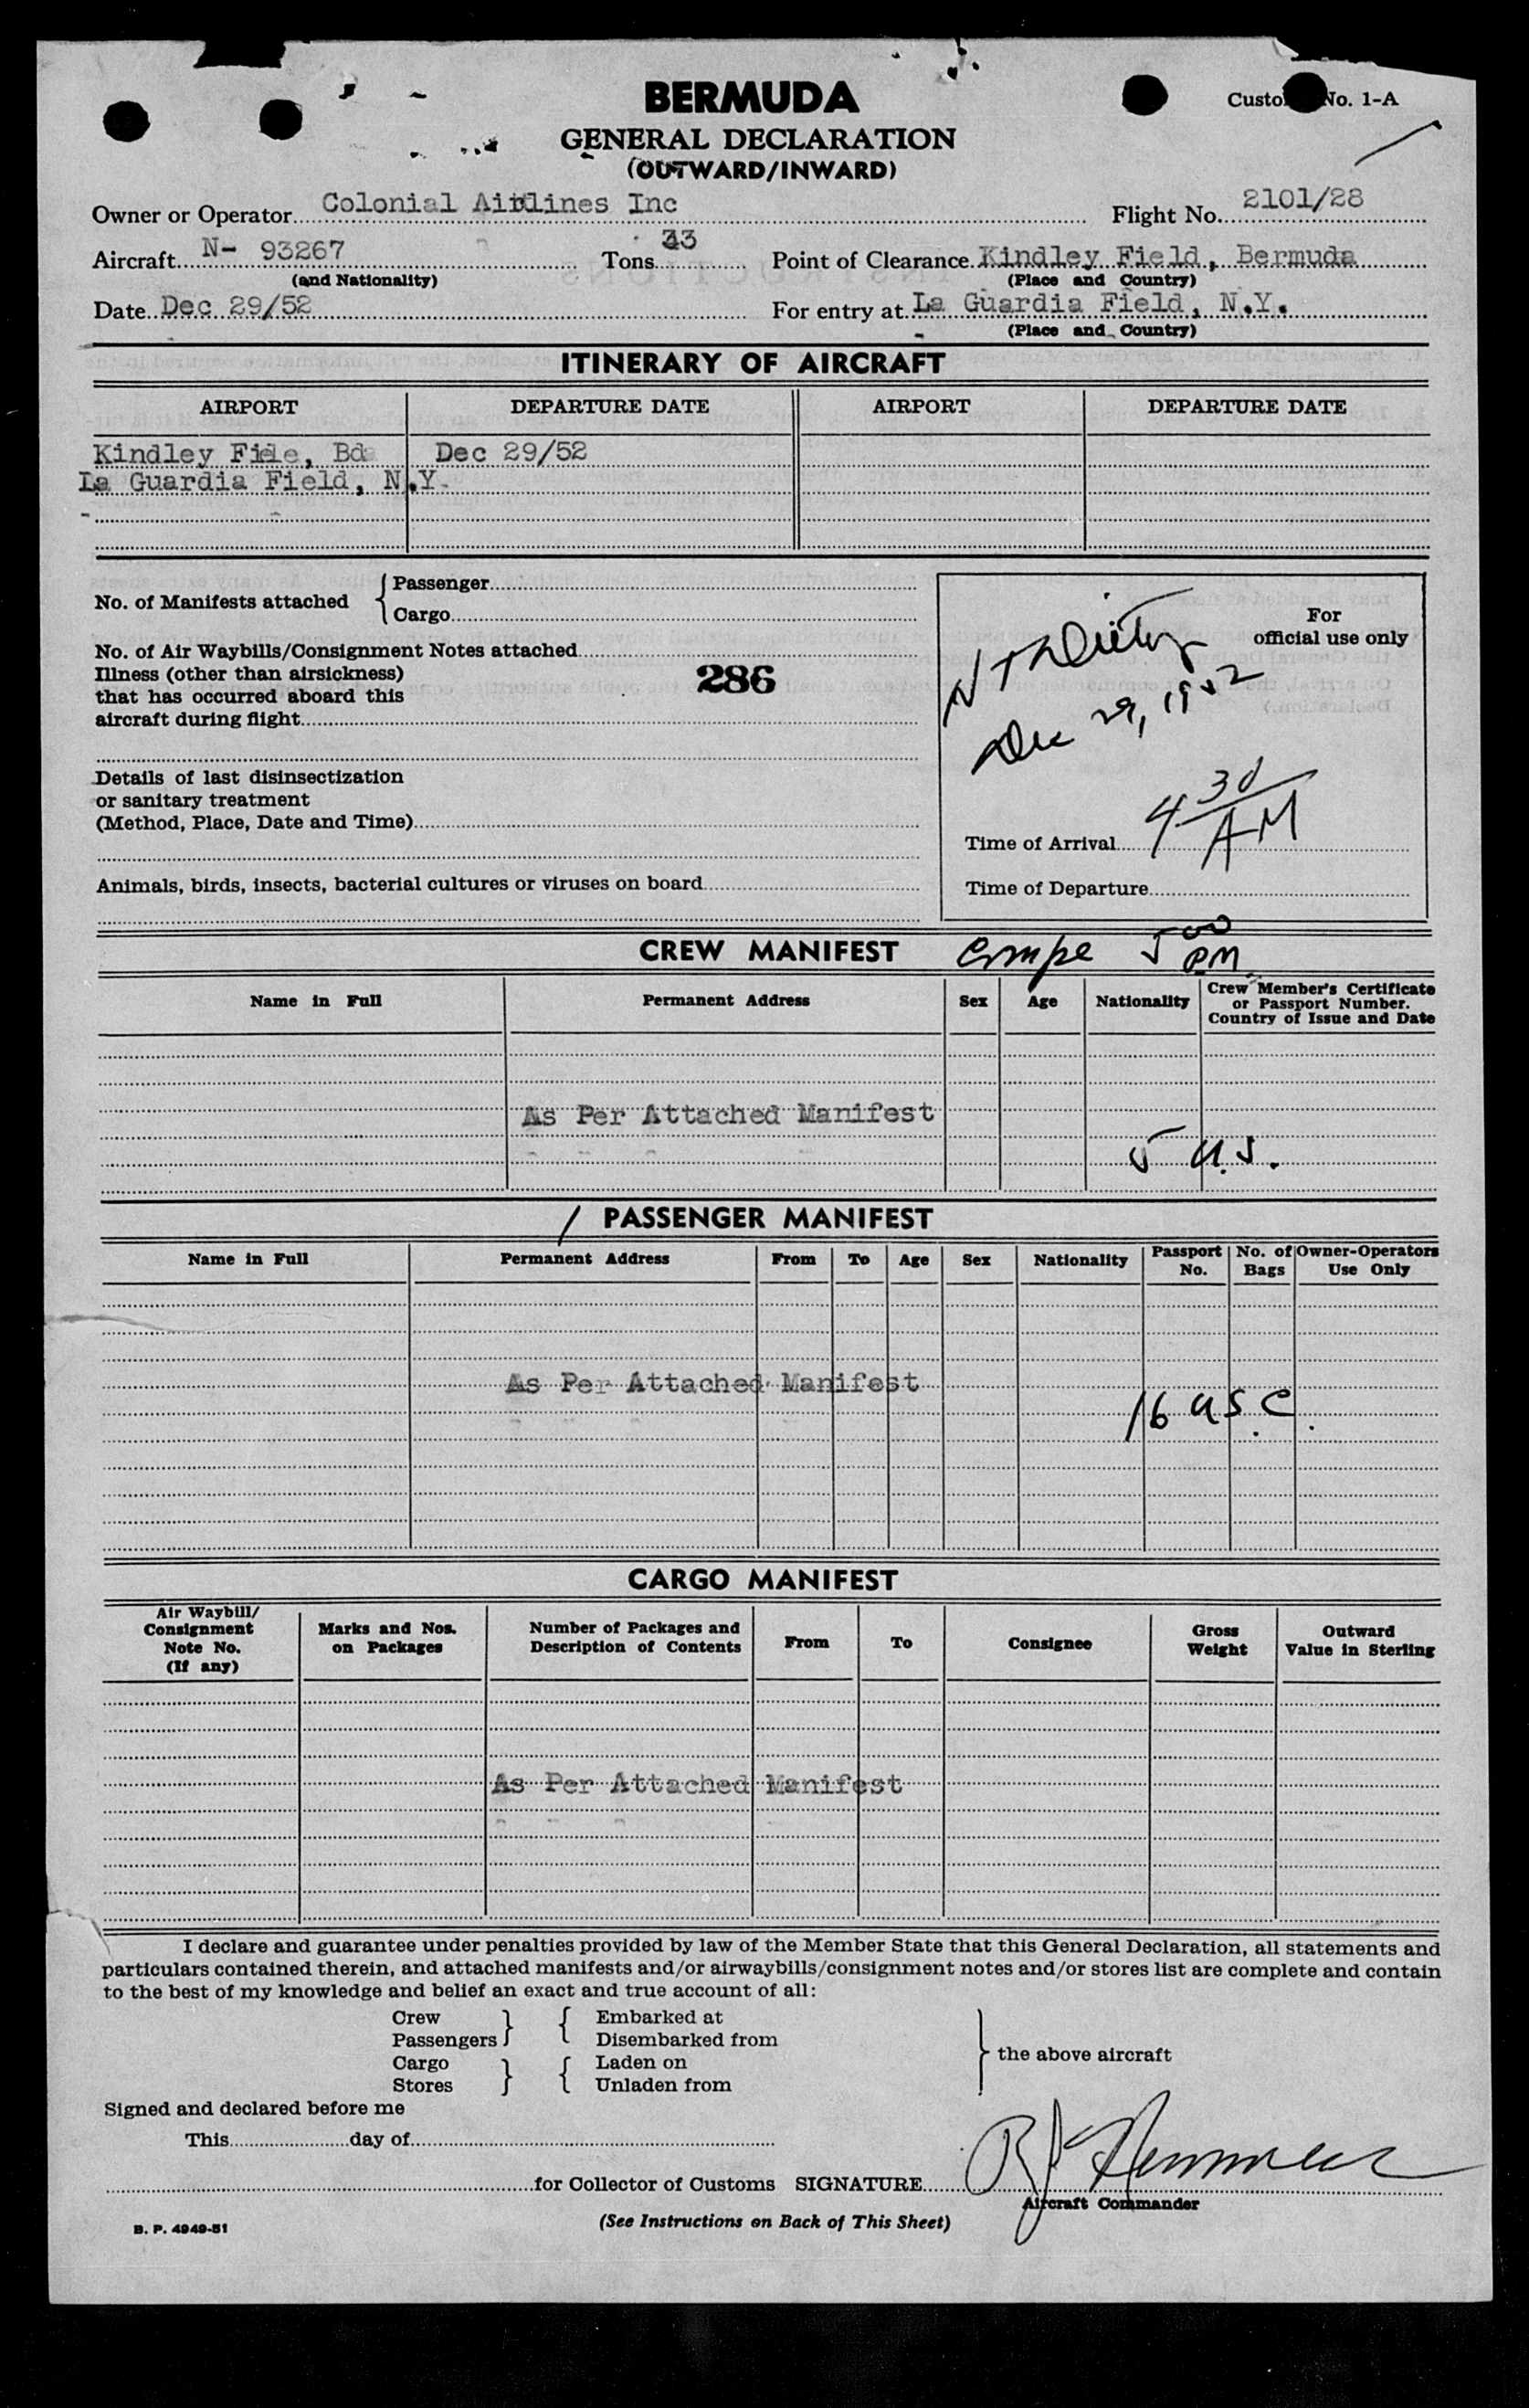 BERMUDA
Custo No. 1-A
GENERAL DECLARATION
(OUTWARD/INWARD)
Owner or Operator Colonial Airlines Inc Flight No. 2101/28
Aircraft N- 93267 Tons 33 Point of Clearance Kindley Field, Bermuda
(and Nationality) (Place and Country)
Date Dec 29/52 For entry at La Guardia Field, N.Y.
(Place and Country)
ITINERARY OF AIRCRAFT
AIRPORT DEPARTURE DATE AIRPORT DEPARTURE DATE
Kindley File, Bda Dec 29/52
La Guardia Field, N.Y.
No. of Manifests attached { Passenger
Cargo
For
official use only
No. of Air Waybills/Consignment Notes attached
Illness (other than airsickness)
that has occurred aboard this
aircraft during flight
286
Dec 29, 1952
Details of last disinsectization
or sanitary treatment
(Method, Place, Date and Time)
Time of Arrival 4 30 AM
Animals, birds, insects, bacterial cultures or viruses on board
Time of Departure
CREW MANIFEST 5 00 PM
Name in Full Permanent Address Sex Age Nationality Crew Member's Certificate
or Passport Number.
Country of Issue and Date
As Per Attached Manifest
5 U.S.
/ PASSENGER MANIFEST
Name in Full Permanent Address From To Age Sex Nationality Passport No. No. of Bags Owner-Operators Use Only
As Per Attached Manifest
16 USC
CARGO MANIFEST
Air Waybill/
Consignment
Note No.
(If any)
Marks and Nos.
on Packages
Number of Packages and
Description of Contents
From To Consignee
Gross
Weight
Outward
Value in Sterling
As Per Attached Manifest
I declare and guarantee under penalties provided by law of the Member State that this General Declaration, all statements and
particulars contained therein, and attached manifests and/or airwaybills/consignment notes and/or stores list are complete and contain
to the best of my knowledge and belief an exact and true account of all:
Crew } { Embarked at
Passengers Disembarked from
} the above aircraft
Cargo } { Laden on
Stores Unladen from
Signed and declared before me
This day of
for Collector of Customs SIGNATURE
Aircraft Commander
B. P. 4949-51
(See Instructions on Back of This Sheet)